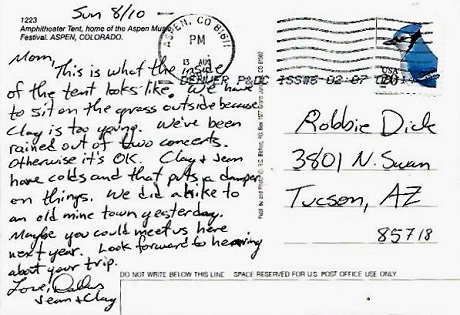 Sun 8/10 —
1223
Amphitheater Tent, home of the Aspen Music
Festival. ASPEN, COLORADO.
Mom,
This is what the inside
of the tent looks like. We have
to sit on the grass outside because
Clay is too young. We've been
rained out of two concerts.
Otherwise it's OK. Clay + Jean
have colds and that puts a damper
on things. We did a hike to
an old mine town yesterday.
Maybe you could meet us here
next year. Look forward to hearing
about your trip.
Love,
Jean + Clay
ASPEN, CO 81611
PM
13 AUG
DENVER P&DC
USA
20
Robbie Dick
3801 N. Swan
Tucson, AZ
85718
DO NOT WRITE BELOW THIS LINE SPACE RESERVED FOR U.S. POST OFFICE USE ONLY